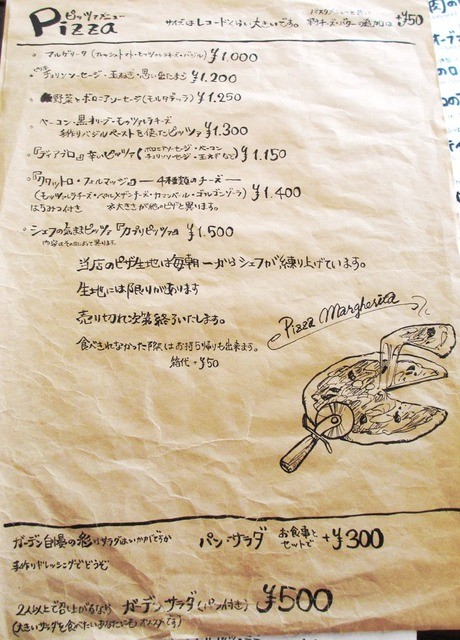 ピッツァメニュー
Pizza
サイズはレコードくらい大きいです。
+¥50
マルゲリータ (フレッシュトマト・モッツァレラチーズ・バジル) ¥1.000
チョリソーソーセージ・玉ねぎ・黒い ¥1.200
野菜とボロニアソーセージ(モルタデッラ) ¥1.250
ベーコン・黒オリーブ・モッツァレラチーズ
手作りバジルペーストを使ったピッツァ ¥1.300
『ディアブロ』 辛いピッツァ (ボロニアソーセージ・ベーコン チョリソーソーセージ・玉ネギなど) ¥1.150
『クワットロ・フォルマッジ』 ― 4種類のチーズ ―
(モッツァレラチーズ・パルメザンチーズ・カマンベール・ゴルゴンゾーラ) ¥1.400
はちみつ付き ※大きさが他のピザと異ります。
シェフの気まぐれピッツァ『カプリピッツァ』 ¥1.500
内容はその日によって異ります。
当店のピザ生地は毎朝一からシェフが練り上げています。
生地には限りがあります
売り切れ次第終了いたします。
食べきれなかった際はお持ち帰りも出来ます。
箱代 +¥50
Pizza Margherita
ガーデン自慢の彩りサラダはいかがですか
パン・サラダ お食事とセットで +¥300
手作りドレッシングでどうぞ
2人以上で召し上がるなら ガーデンサラダ(パン付き) ¥500
(大きいサラダを食べたいあなたにもオススメです)